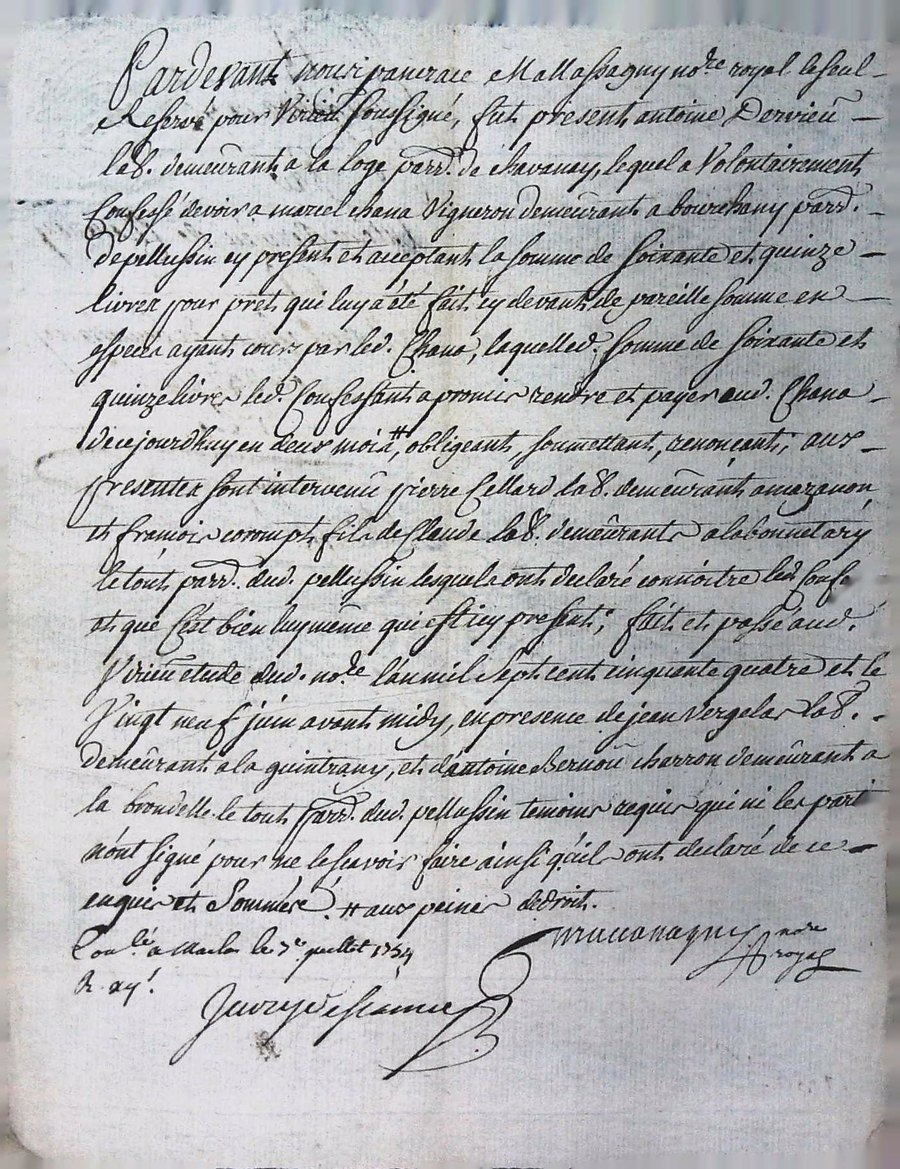 Pardevant nous pancrace Mallassagny no.re royal le seul
Reservé pour Virieu soussigné, fut present antoine Dervieu
lab. demeurant a la loge parr. de chavanay, lequel a Volontairement
Confessé devoir a marcel chana Vigneron demeurant a bourchany parr.
de pellussin cy present et acceptant la somme de soixante et quinze
livres pour pret qui luy a été fait cy devant de pareille somme en
especes ayant cours par led. Chana, laquelled. somme de soixante et
quinze livres led. Confessant a promis rendre et payer aud. Chana
de ce jourdhuy en deux mois #, obligeant, soumettant, renonceant; aux
presentes sont intervenu pierre Cellard lab. demeurant a mazanon,
et francois corompt fils de Claude lab. demeurants a la bonnetary
le tout parr. dud. pellussin lesquels ont declaré connoitre led. Conf.
et que C'est bien luy même qui est icy present; fait et passé aud.
Virieu etude dud. no.re l'an mil sept cent cinquante quatre et le
Vingt neuf juin avant midy, en presence de jean Vergelas lab.
demeurant a la quintrany, et d'antoine Bernou charron demeurant a
la brondelle le tout parr. dud. pellussin temoins requis qui ni les parti
n'ont signé pour ne le scavoir faire ainsi qu'ils ont declaré de ce
enquis et Sommés. # aux peines de droit.
no.re
royal
Con.lé a Maclas le 7e juillet 1754